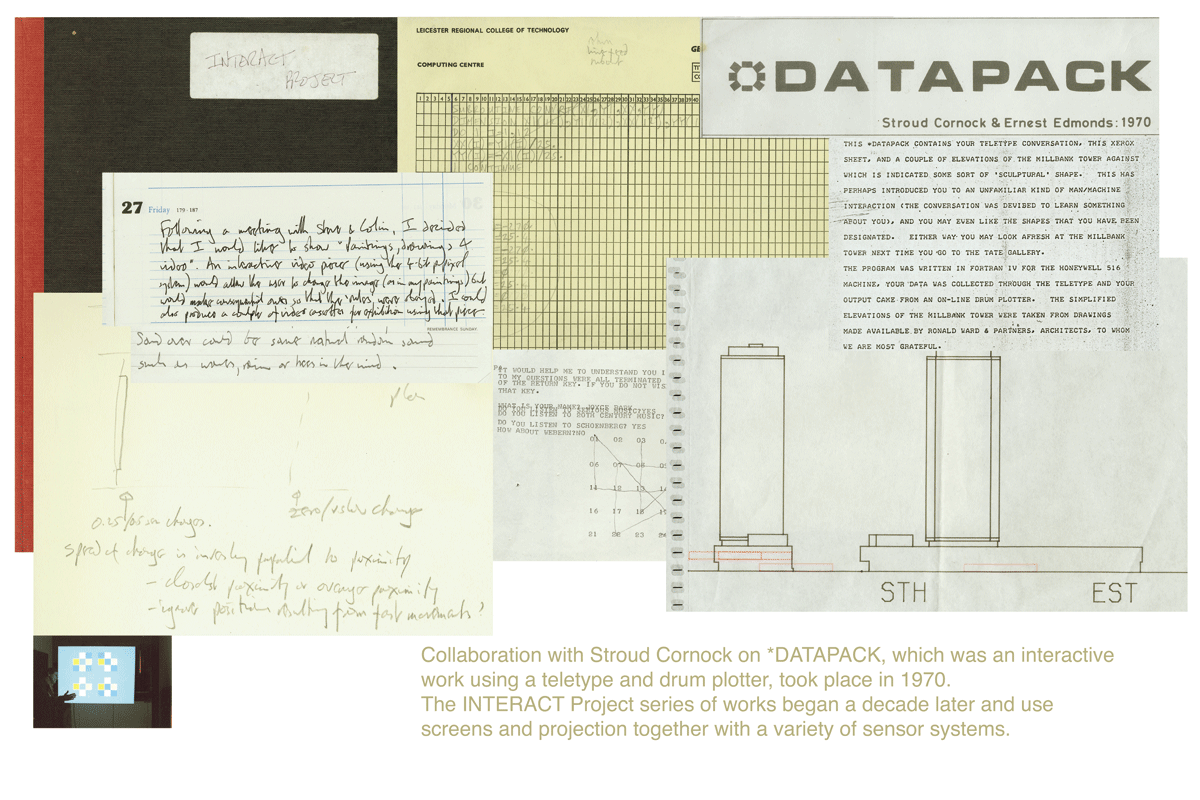 INTERACT
PROJECT
LEICESTER REGIONAL COLLEGE OF TECHNOLOGY
COMPUTING CENTRE
*DATAPACK
Stroud Cornock & Ernest Edmonds: 1970
THIS *DATAPACK CONTAINS YOUR TELETYPE CONVERSATION, THIS XEROX
SHEET, AND A COUPLE OF ELEVATIONS OF THE MILLBANK TOWER AGAINST
WHICH IS INDICATED SOME SORT OF 'SCULPTURAL' SHAPE. THIS HAS
PERHAPS INTRODUCED YOU TO AN UNFAMILIAR KIND OF MAN/MACHINE
INTERACTION (THE CONVERSATION WAS DEVISED TO LEARN SOMETHING
ABOUT YOU), AND YOU MAY EVEN LIKE THE SHAPES THAT YOU HAVE BEEN
DESIGNATED. EITHER WAY YOU MAY LOOK AFRESH AT THE MILLBANK
TOWER NEXT TIME YOU GO TO THE TATE GALLERY.
THE PROGRAM WAS WRITTEN IN FORTRAN IV FOR THE HONEYWELL 516
MACHINE, YOUR DATA WAS COLLECTED THROUGH THE TELETYPE AND YOUR
OUTPUT CAME FROM AN ON-LINE DRUM PLOTTER. THE SIMPLIFIED
ELEVATIONS OF THE MILLBANK TOWER WERE TAKEN FROM DRAWINGS
MADE AVAILABLE BY RONALD WARD & PARTNERS, ARCHITECTS, TO WHOM
WE ARE MOST GRATEFUL.
27 Friday 179-187
Following a meeting with Stroud & Colin, I decided
that I would like to show "Paintings, drawings &
video". An interactive video piece (using the 4-bit pixel
system) would allow the user to change the image (as in my paintings) but
would make consequential ones so that the 'rules' were obeyed. I could
also produce a couple of video cassettes for exhibition using that piece
REMEMBRANCE SUNDAY
Sound over could be some natural random sound
such as waves, rain or trees in the wind.
IT WOULD HELP ME TO UNDERSTAND YOU I
TO MY QUESTIONS WERE ALL TERMINATED
OF THE RETURN KEY. IF YOU DO NOT WIS
THAT KEY.
WHAT IS YOUR NAME?
DO YOU LISTEN TO SERIOUS MUSIC?YES
DO YOU LISTEN TO 20TH CENTURY MUSIC?
DO YOU LISTEN TO SCHOENBERG? YES
HOW ABOUT WEBERN?NO
01 02 03
06 07 08
11 12 13
16 17 18
21 22 23
plan
zero/v slow change
speed of change is inversely proportional to proximity
- closest proximity or average proximity
- ignore positions resulting from fast movements?
STH EST
Collaboration with Stroud Cornock on *DATAPACK, which was an interactive
work using a teletype and drum plotter, took place in 1970.
The INTERACT Project series of works began a decade later and use
screens and projection together with a variety of sensor systems.